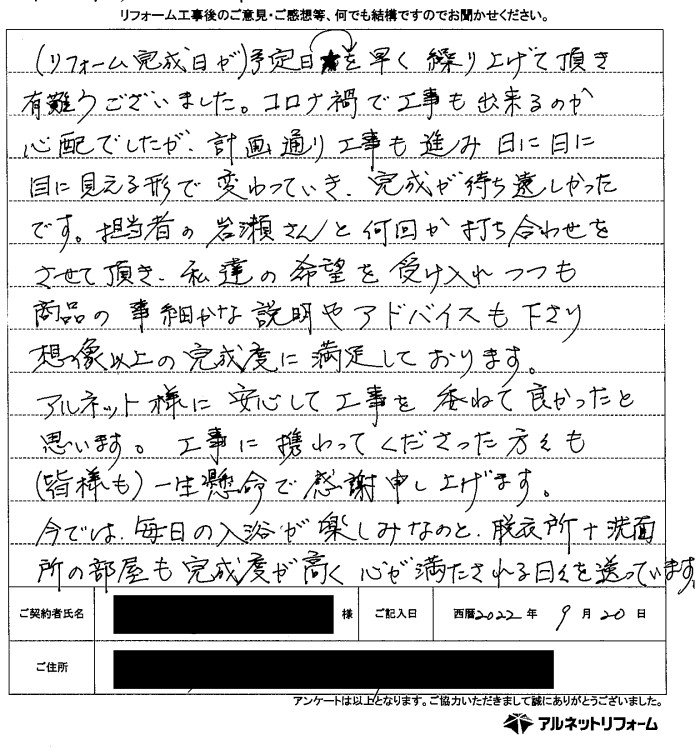 リフォーム工事後のご意見・ご感想等、何でも結構ですのでお聞かせください。
(リフォーム完成日が)予定日を早く繰り上げて頂き
有難うございました。コロナ禍で工事も出来るのか
心配でしたが、計画通り工事も進み日に日に
目に見える形で変わっていき、完成が待ち遠しかった
です。担当者の岩瀬さんと何回か打ち合わせを
させて頂き、私達の希望を受け入れつつも
商品の事細かな説明やアドバイスも下さり
想像以上の完成度に満足しております。
アルネット様に安心して工事を委ねて良かったと
思います。工事に携わってくださった方々も
(皆様も)一生懸命で感謝申し上げます。
今では、毎日の入浴が楽しみなのと、脱衣所+洗面
所の部屋も完成度が高く心が満たされる日々を送っています。
ご契約者氏名 様 ご記入日 西暦2022年 9月20日
ご住所
アンケートは以上となります。ご協力いただきまして誠にありがとうございました。
アルネットリフォーム